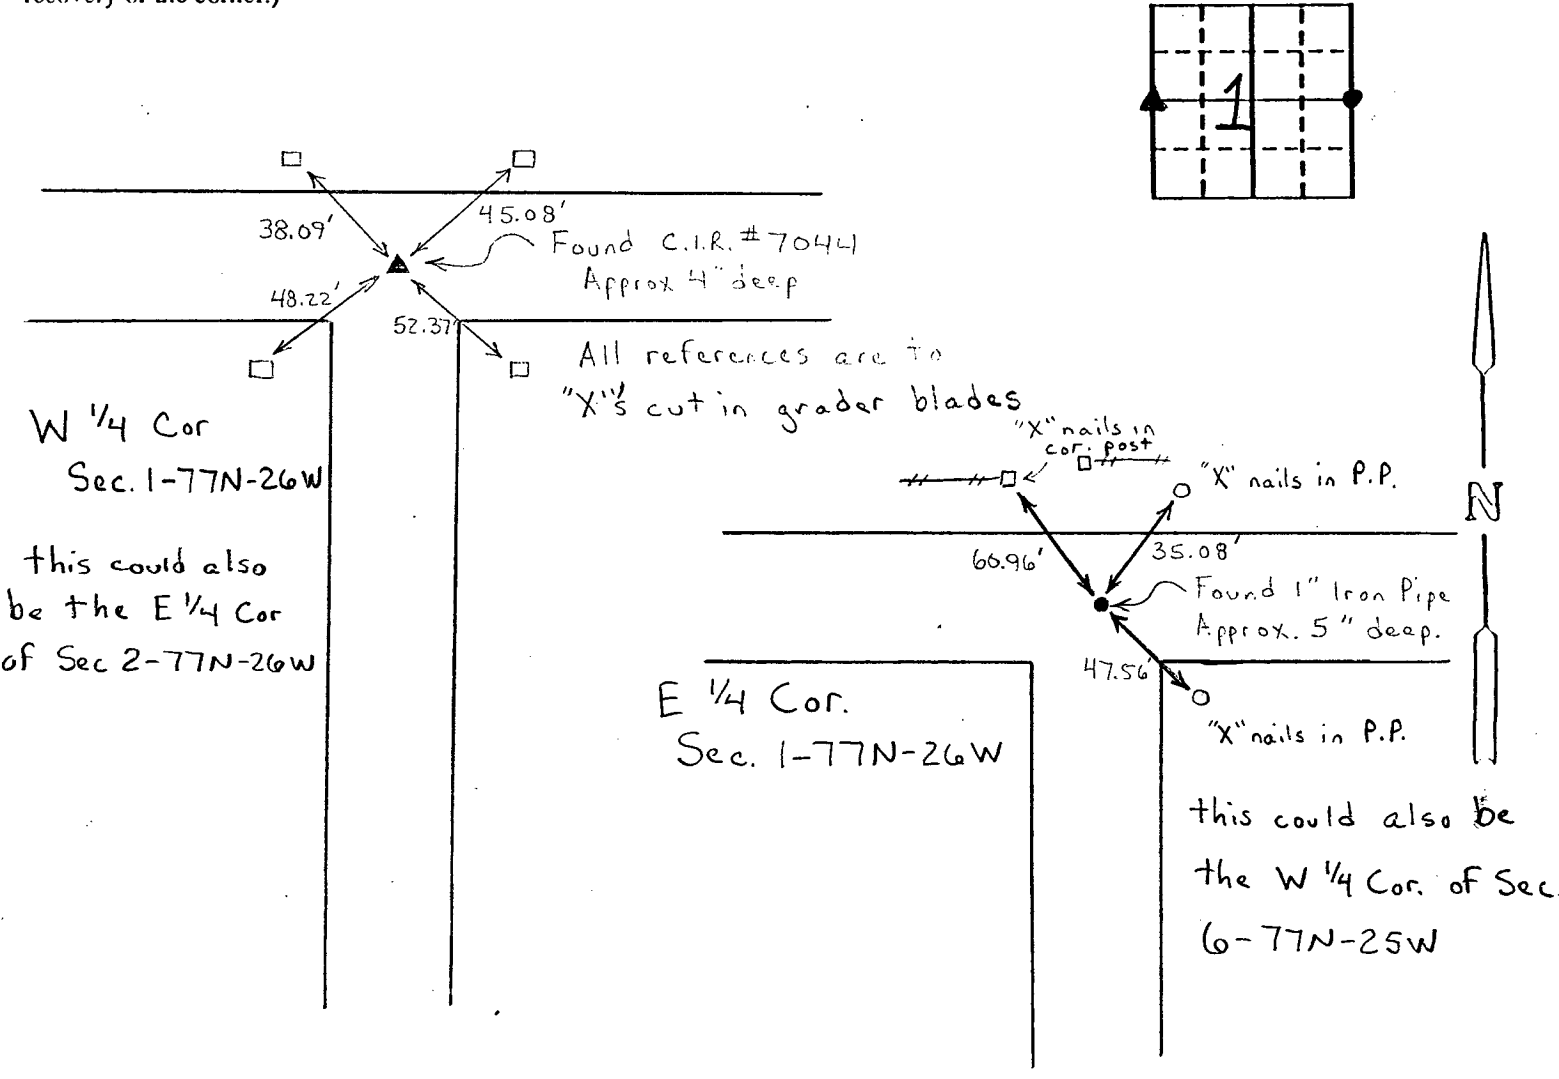 recovery of the corner.)
1
38.09'
45.08'
Found C.I.R. #7044
Approx 4" deep
48.22'
52.37'
All references are to
"X"'s cut in grader blades
W 1/4 Cor
Sec. 1-77N-26W
this could also
be the E 1/4 Cor
of Sec 2-77N-26W
"X" nails in
cor. post
"X" nails in P.P.
N
60.96'
35.08'
Found 1" Iron Pipe
Approx. 5" deep.
47.56'
E 1/4 Cor.
Sec. 1-77N-26W
"X" nails in P.P.
this could also be
the W 1/4 Cor. of Sec.
6-77N-25W